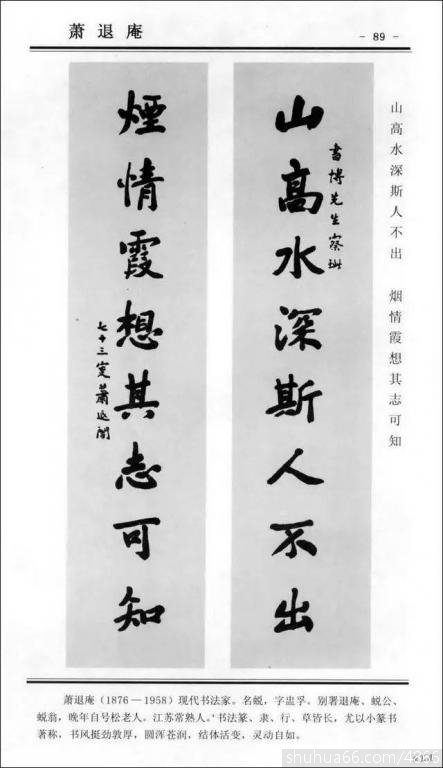 萧退庵
- 89 -
山高水深斯人不出 烟情霞想其志可知
山高水深斯人不出
书博先生察
煙情霞想其志可知
七十三叟萧退闇
萧退庵(1876—1958)现代书法家。名蜕,字盅孚。别署退庵、蜕公、
蜕翁,晚年自号松老人。江苏常熟人。书法篆、隶、行、草皆长,尤以小篆书
著称,书风挺劲敦厚,圆浑苍润,结体活变,灵动自如。
shuhua66.com/4866